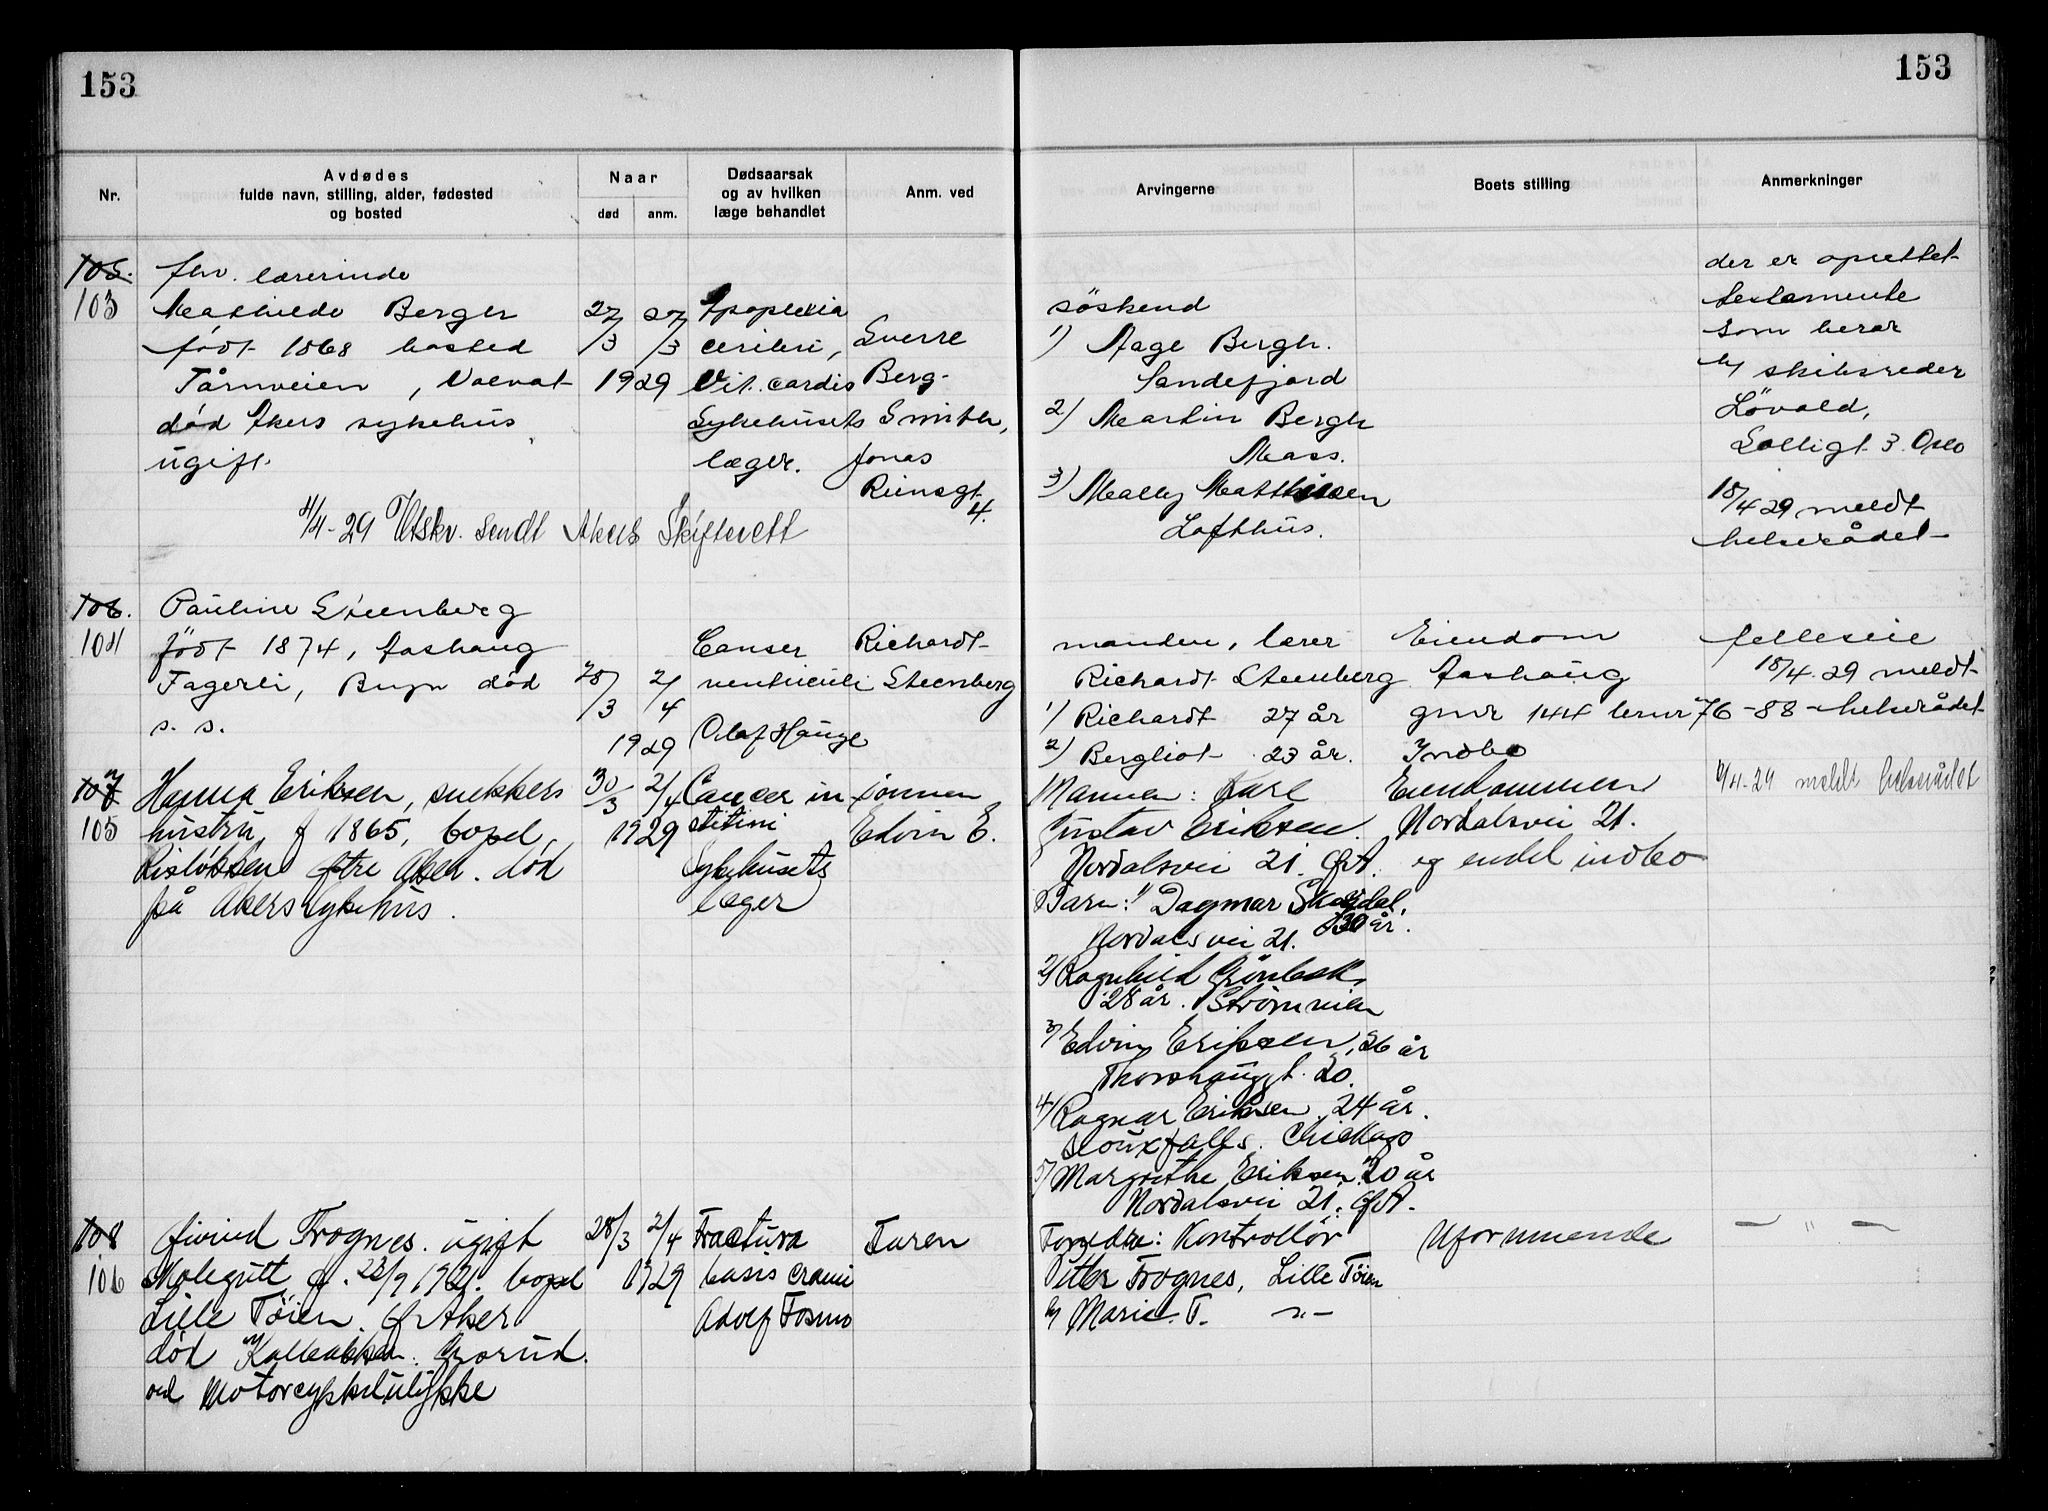 153
153
Nr.
Avdødes
fulde navn, stilling, alder, fødested
og bosted
Naar
død
anm.
Dødsaarsak
og av hvilken
læge behandlet
Anm. ved
Arvingerne
Boets stilling
Anmerkninger
105.
103
fhv. lærerinde
Mathilde Bergh
født 1868 bosted
Tårnveien,
død Akers sykehus
ugift.
27/3 27/3
1929
Apoplexia
cerebri,
Vit. cordis
Sykehusets
læger.
Sverre
Berg-
Smith,
Jonas
Reinsgt
4.
4/4-29 Utskr. sendt Akers Skifterett
søskend
1) Aage Bergh.
Sandefjord
2) Martin Bergh
Mass.
3) Mally Matthisen
Lofthus.
der er oprettet
testamente
som beror
h/ skibsreder
Løvold,
Solligt 3 Oslo
18/4 29 meldt
helserådet
106.
104
Pauline Steenberg
født 1874, Aashaug
Fagerli, Bryn død
s. s.
28/3 2/4
1929
Canser
ventriculi
Olaf Hauge
Richardt
Steenberg
manden, lærer
Richardt Steenberg
1) Richardt 27 år
2) Bergliot 23 år.
Eiendom
Aashaug
gnr 144 brnr 76-88-
Indbo
felleseie
18/4.29 meldt
helserådet
107
105
Hanna Eriksen, snekkers
hustru, f 1865, bopel
Risløkken Østre Aker. død
på Akers sykehus.
30/3 2/4
1929
Cancer in
Sykehusets
læger
sønnen
Edvin E.
Mannen: Karl
Gustav Eriksen.
Nordalsvei 21. Ø.A.
Barn: 1) Dagmar Skardal,
30 år.
Nordalsvei 21.
2) Ragnhild Grönbek,
28 år. Strömveien
3) Edvin Eriksen, 26 år
Thorshauggt. 20.
4) Ragnar Eriksen 24 år.
Siouxfalls. Chickago
5) Margrethe Eriksen 20 år
Nordalsvei 21. Ø.A.
Eiendommen
Nordalsvei 21.
og endel indbo
4-29 meldt helserådet
108
106
Øivind Frognes. ugift
skolegutt, f. 23/9 1921. bopel
Lille Tøien. Ø Aker
død Kalbakken: Grorud.
ved Motorcykkelulykke
28/3 2/4
1929
Fractura
basis cranii
Adolf Fosmo
Faren
Foreldre: Kontrollør
Petter Frognes, Lille Tøien
h/ Marie F. — " —
Uformuende
— " —